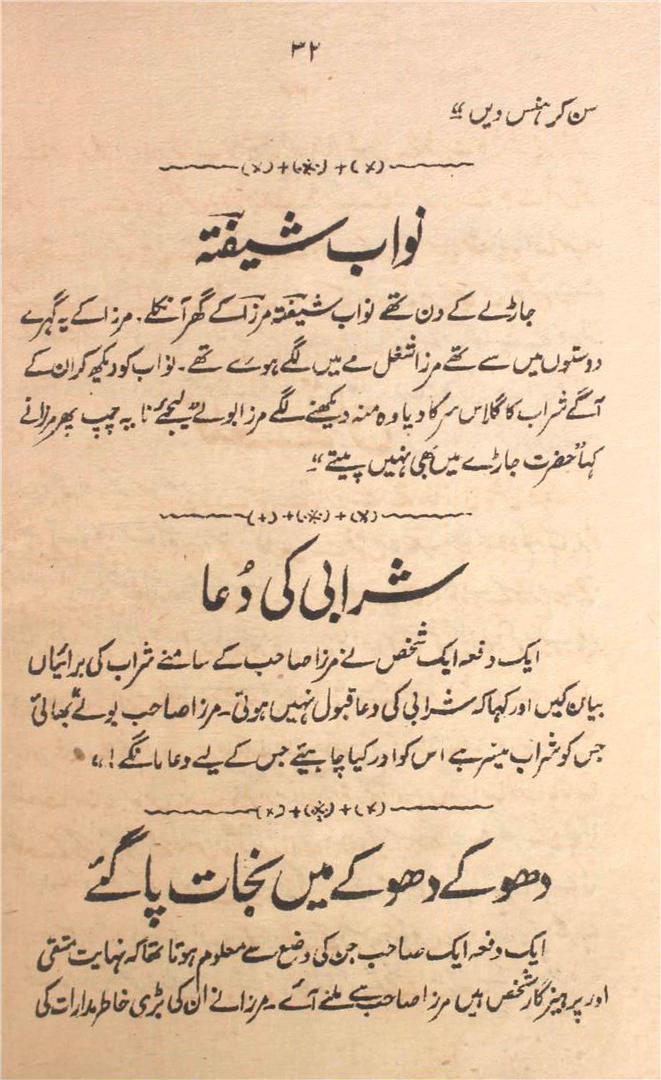 ۳۲
سن کر ہنس دیں"
نواب شیفتہ
جاڑے کے دن تھے نواب شیفتہ مرزا کے گھر آنکلے۔ مرزا کے یہ گہرے
دوستوں میں سے تھے مرزا شغل مے میں لگے ہوے تھے۔ نواب کو دیکھ کر ان کے
آگے شراب کا گلاس سرکا دیا وہ منہ دیکھنے لگے مرزا بولے "لیجئے نا" یہ چپ پھر مرزا نے
کہا "حضرت جاڑے میں بھی نہیں پیتے"
شرابی کی دُعا
ایک دفعہ ایک شخص نے مرزا صاحب کے سامنے شراب کی برائیاں
بیان کیں اور کہا کہ شرابی کی دعا قبول نہیں ہوتی۔ مرزا صاحب بولے "بھائی
جس کو شراب میسر ہے اس کو اور کیا چاہیئے جس کے لیے دعا مانگے!"
دھوکے دھوکے میں نجات پا گئے
ایک دفعہ ایک صاحب جن کی وضع سے معلوم ہوتا تھا کہ نہایت متقی
اور پرہیزگار شخص ہیں مرزا صاحب سے ملنے آئے۔ مرزا نے ان کی بڑی خاطر مدارات کی